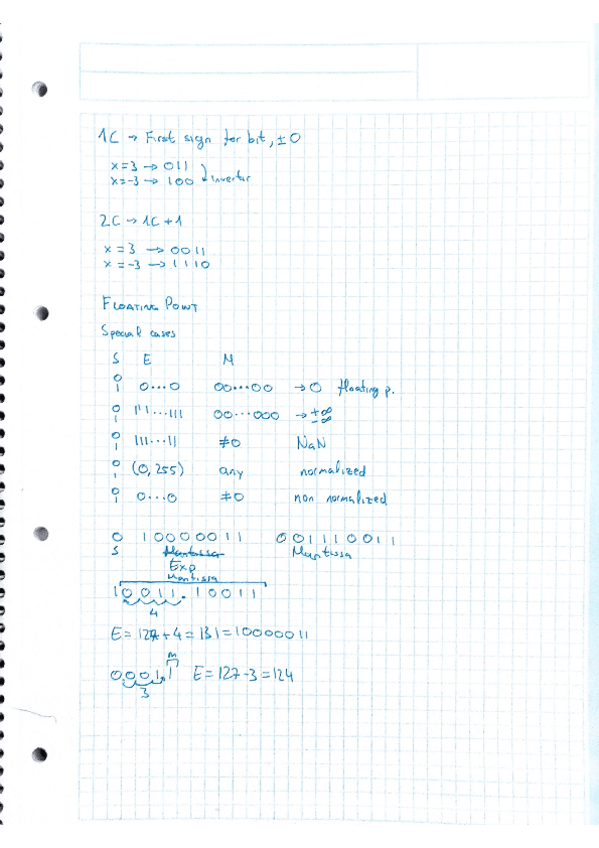 1C → First sign for bit, ±0
x=3 → 011
x=-3 → 100 invertir
2C → 1C+1
x = 3 → 0011
x = -3 → 1110
FLOATING POINT
Special cases
S E M
0 1 0...0 00...00 → 0 floating p.
0 1 111...111 00...000 → +∞ -∞
0 1 111...11 ≠0 NaN
0 1 (0,255) any normalized
0 1 0...0 ≠0 non normalized
0 10000011 001110011
S Mantissa Mantissa
Exp
Mantissa
10011.10011
4
E = 127+4 = 131 = 10000011
m
0.0011 E = 127-3 = 124
3